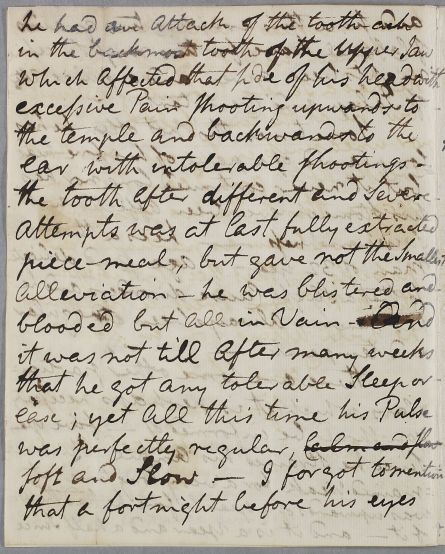 he had an Attack of the tooth ache
in the backmost tooth of the Upper Jaw
which Affected that side of his head with
excessive Pain shooting upwards to
the temple and backwards to the
ear with intolerable shootings –
the tooth After different and severe
Attempts was at last fully extracted
piece-meal; but gave not the smallest
Alleviation – he was blistered and
blooded but All in Vain – And
it was not till After many weeks
that he got any tolerable Sleep or
ease; yet All this time his Pulse
was perfectly regular, calm and slow
soft and Slow – I forgot to mention
that a fortnight before his eyes